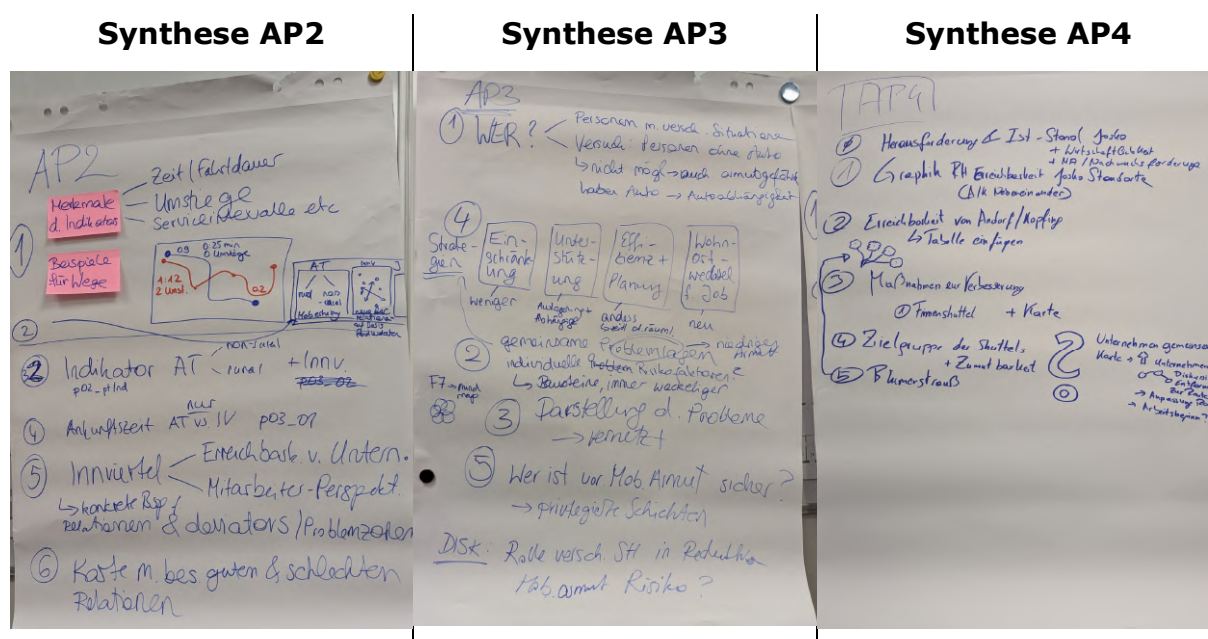 Synthese AP2
AP2
Merkmale
d. Indikators
Zeit/Fahrtdauer
Umstiege
Serviceintervalle etc
1
Beispiele
für Wege
09
0:25 min
0 Umstiege
1:12
2 Umst.
02
AT
rural
non-rural
2
2 Indikator AT
non-rural
rural
+ Innv.
p02_ptInd
p03_02
4 Ankunftszeit AT vs IV p03_01
nur
5 Innviertel
Erreichbark. v. Untern.
Mitarbeiter-Perspekt.
↳ konkrete Bsp f
Relationen & deviators/Problemzonen
6 Karte m. bes. guten & schlechten
Relationen
Synthese AP3
AP3
1 WER?
Personen m. versch. Situationen
Versuch: Personen ohne Auto
↳ nicht mögl → auch armutsgefährd.
haben Auto → Autoabhängigkeit
4
Strate-
gien
Ein-
schränk-
ung
weniger
Unter-
stütz-
ung
Abhängige
Effi-
zienz +
Planung
anders
Wohn-
ort-
wechsel
f. Job
neu
2 gemeinsame Problemlagen → niedriges
Armut
individuelle Problem Risikofaktoren?
↳ Bausteine, immer wackeliger
F7 → mind
map
3 Darstellung d. Probleme
→ vernetzt
5 Wer ist vor Mob. Armut sicher?
→ privilegierte Schichten
DISK: Rolle versch. SH in Reduktion
Mob.armut Risiko?
Synthese AP4
AP4
Ø Herausforderung & Ist-Stand Josko
+ Wirtschaftlichkeit
+ MA/Nachwuchsförderung
1 Graphik RH Erreichbarkeit Josko Standorte
(A/K Nebeneinander)
2 Erreichbarkeit von Andorf/Kopfing
↳ Tabelle einfügen
3 Maßnahmen zur Verbesserung
1 Firmenshuttel + Karte
4 Zielgruppe der Shuttels
+ Zumutbarkeit
5 Blumenstrauß
Unternehmen gemeinsam
Karte + Unternehmen
→ Anpassung
→ Arbeitsbeginn?